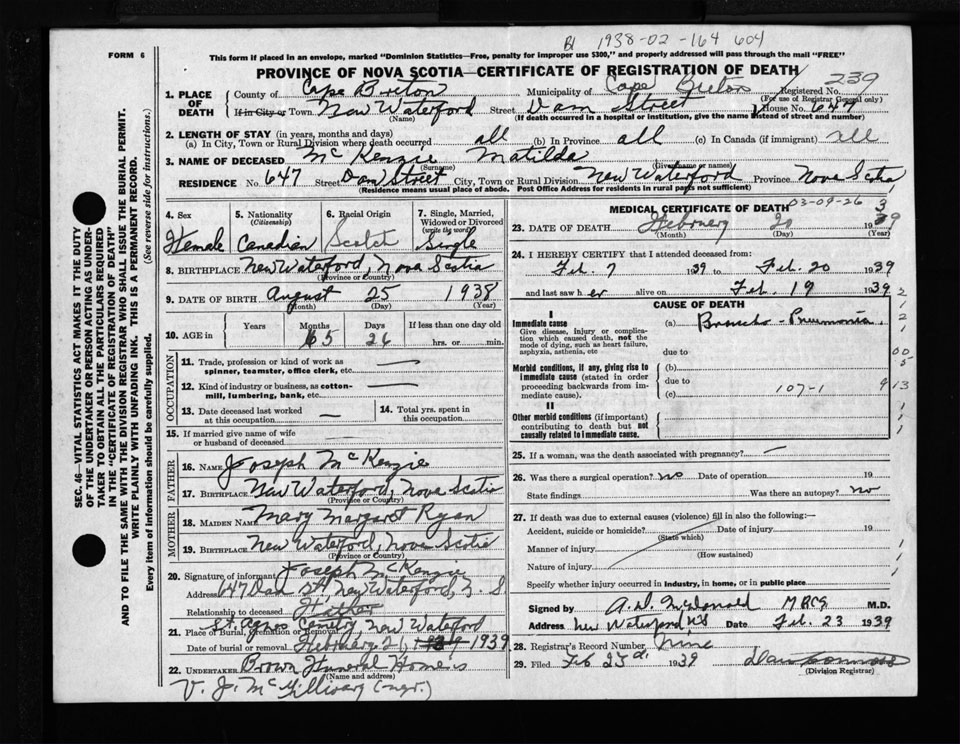 1938-02-164 604
FORM 6
This form if placed in an envelope, marked "Dominion Statistics—Free, penalty for improper use $300," and properly addressed will pass through the mail "FREE"
PROVINCE OF NOVA SCOTIA—CERTIFICATE OF REGISTRATION OF DEATH
239
1. PLACE OF DEATH
County of Cape Breton Municipality of Cape Breton Registered No.
(For use of Registrar General only)
If in City or Town New Waterford Street Dam Street House No. 647
(Name) (If death occurred in a hospital or institution, give the name instead of street and number)
2. LENGTH OF STAY (in years, months and days)
(a) In City, Town or Rural Division where death occurred all (b) In Province all (c) In Canada (if immigrant) all
3. NAME OF DECEASED McKenzie Matilda
(Surname) (Given name or names)
RESIDENCE No. 647 Street Dam Street City, Town or Rural Division New Waterford Province Nova Scotia
(Residence means usual place of abode. Post Office Address for residents in rural parts not sufficient)
4. Sex
Female
5. Nationality
(Citizenship)
Canadian
6. Racial Origin
Scotch
7. Single, Married, Widowed or Divorced
(write the word)
Single
8. BIRTHPLACE New Waterford, Nova Scotia
(Province or Country)
9. DATE OF BIRTH August 25 1938
(Month) (Day) (Year)
10. AGE in
Years Months Days If less than one day old
5 26 hrs. or min.
OCCUPATION
11. Trade, profession or kind of work as spinner, teamster, office clerk, etc. —
12. Kind of industry or business, as cotton-mill, lumbering, bank, etc. —
13. Date deceased last worked at this occupation —
14. Total yrs. spent in this occupation
15. If married give name of wife or husband of deceased —
FATHER
16. NAME Joseph McKenzie
17. BIRTHPLACE New Waterford, Nova Scotia
(Province or Country)
MOTHER
18. MAIDEN NAME Mary Margaret Ryan
19. BIRTHPLACE New Waterford, Nova Scotia
(Province or Country)
20. Signature of informant Joseph McKenzie
Address 647 Dam St, New Waterford, N. S.
Relationship to deceased Father
St. Agnes Cemetry New Waterford
21. Place of Burial, Cremation or Removal
Date of burial or removal February 21, 1939
22. UNDERTAKER Brown Funeral Home
(Name and address)
V. J. McGillivary (mgr.)
MEDICAL CERTIFICATE OF DEATH
03-09-26
23. DATE OF DEATH February 20 1939
(Month) (Day) (Year)
24. I HEREBY CERTIFY that I attended deceased from:
Feb. 7 1939 to Feb. 20 1939
and last saw her alive on Feb. 19 1939
CAUSE OF DEATH
I
Immediate cause
Give disease, injury or complication which caused death, not the mode of dying, such as heart failure, asphyxia, asthenia, etc
(a) Broncho-Pneumonia
due to
Morbid conditions, if any, giving rise to immediate cause (stated in order proceeding backwards from immediate cause).
(b)
due to
(c) 107-1
II
Other morbid conditions (if important) contributing to death but not causally related to immediate cause.
25. If a woman, was the death associated with pregnancy? —
26. Was there a surgical operation? no Date of operation 19
State findings Was there an autopsy? no
27. If death was due to external causes (violence) fill in also the following:—
Accident, suicide or homicide? Date of injury 19
(State which)
Manner of injury
(How sustained)
Nature of injury
Specify whether injury occurred in industry, in home, or in public place
Signed by A. D. McDonald M.D.
Address New Waterford NS Date Feb. 23 1939
28. Registrar's Record Number nine
29. Filed Feb 23d. 1939
(Division Registrar)
SEC. 46—VITAL STATISTICS ACT MAKES IT THE DUTY
OF THE UNDERTAKER OR PERSON ACTING AS UNDER-
TAKER TO OBTAIN ALL THE PARTICULARS REQUIRED
IN THE "CERTIFICATE OF REGISTRATION OF DEATH"
AND TO FILE THE SAME WITH THE DIVISION REGISTRAR WHO SHALL ISSUE THE BURIAL PERMIT.
WRITE PLAINLY WITH UNFADING INK. THIS IS A PERMANENT RECORD.
Every item of information should be carefully supplied. (See reverse side for instructions.)